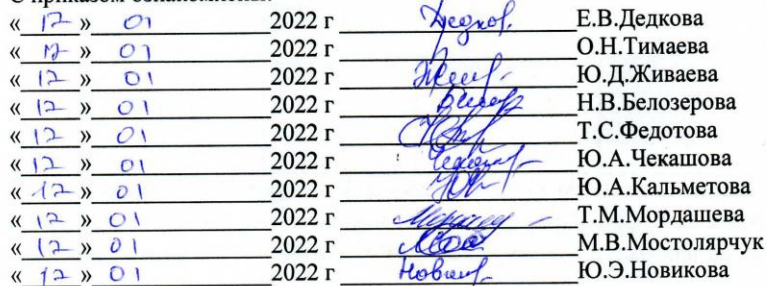 С приказом ознакомлены:
« 12 » 01 2022 г Дедков. Е.В.Дедкова
« 12 » 01 2022 г О.Н.Тимаева
« 12 » 01 2022 г Ю.Д.Живаева
« 12 » 01 2022 г Н.В.Белозерова
« 12 » 01 2022 г Т.С.Федотова
« 12 » 01 2022 г Ю.А.Чекашова
« 12 » 01 2022 г Ю.А.Кальметова
« 12 » 01 2022 г Т.М.Мордашева
« 12 » 01 2022 г М.В.Мостолярчук
« 12 » 01 2022 г Ю.Э.Новикова